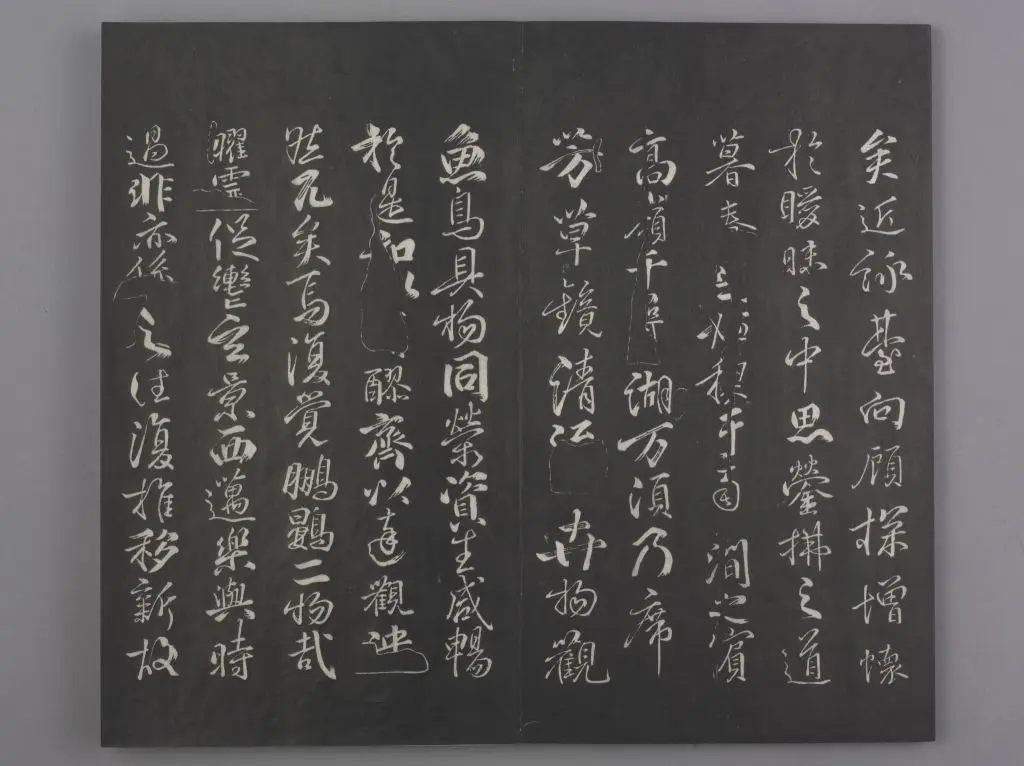 矣近詠臺向顧探增懷
於曖昧之中思瑩拂之道
暮春 禊于南澗之濱
高嶺千尋湖万頃乃席
芳草鏡清 卉物觀
魚鳥具物同榮資生咸暢
於是和 醪齊以達觀泱
然兀矣焉復覺鵬鷃二物哉
曜靈促轡急景西邁樂與時
過悲亦係之往復推移新故